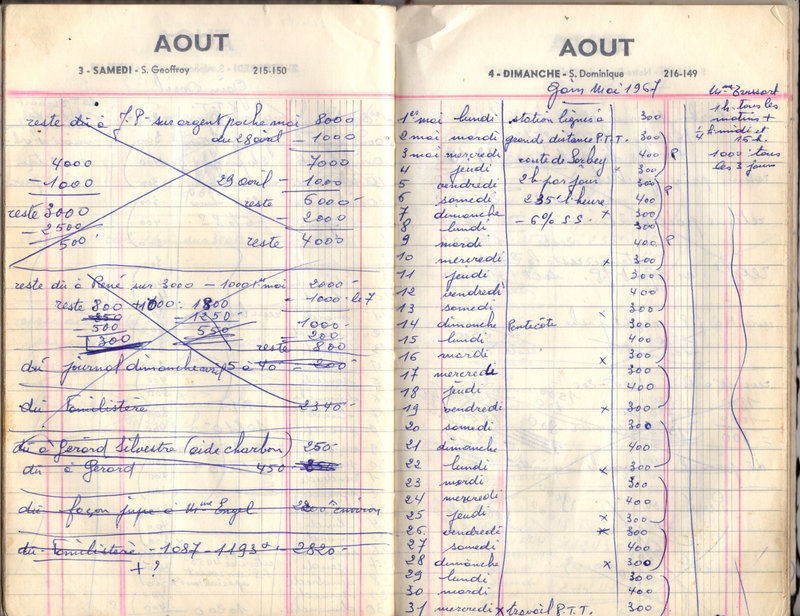 AOUT
3 - SAMEDI - S. Geoffroy 215-150
reste dû à J.P. sur argent poche mai 8000
du 28 avril - 1000
4000 7000
- 1000 29 avril - 1000
reste 6000
reste 3000 - 2000
- 2500
500 reste 4000
reste dû à René sur 3000 - 1000 1er mai 2000
reste 800 + 1000 : 1800 - 1000 le 7
250 - 1250 1000
- 500 550 - 200
300 reste 800
dû journal dimanche avril 5 à 40 - 200
dû Familistère 2340
dû à Gérard Silvestre (aide charbon) 250
dû à Gérard 450
dû façon jupe à Mme Engel 2200 environ
dû Familistère - 1087 - 1193 - 2820
+ ?
AOUT
4 - DIMANCHE - S. Dominique 216-149
Gain Mai 1967
1er mai lundi station lignes à 300
2 mai mardi grande distance P.T.T. 300
3 mai mercredi route de Sorbey 400 P
4 jeudi x 300
5 vendredi 2h par jour 300 P
6 samedi 235 l'heure 400
7 dimanche - 6% S.S. x 300
8 lundi 300
9 mardi 400 P
10 mercredi x 300
11 jeudi 300
12 vendredi 400
13 samedi x 300
14 dimanche Pentecôte 300
15 lundi 400
16 mardi x 300
17 mercredi 300
18 jeudi 400
19 vendredi x 300
20 samedi 300
21 dimanche 400
22 lundi x 300
23 mardi 300
24 mercredi 400
25 jeudi x 300
26 vendredi x 300
27 samedi 400
28 dimanche x 300
29 lundi 300
30 mardi 400
31 mercredi x travail P.T.T. 300
Mme
1h tous les
matins +
1/4 h midi et
15 h.
1000 tous
les 3 jours